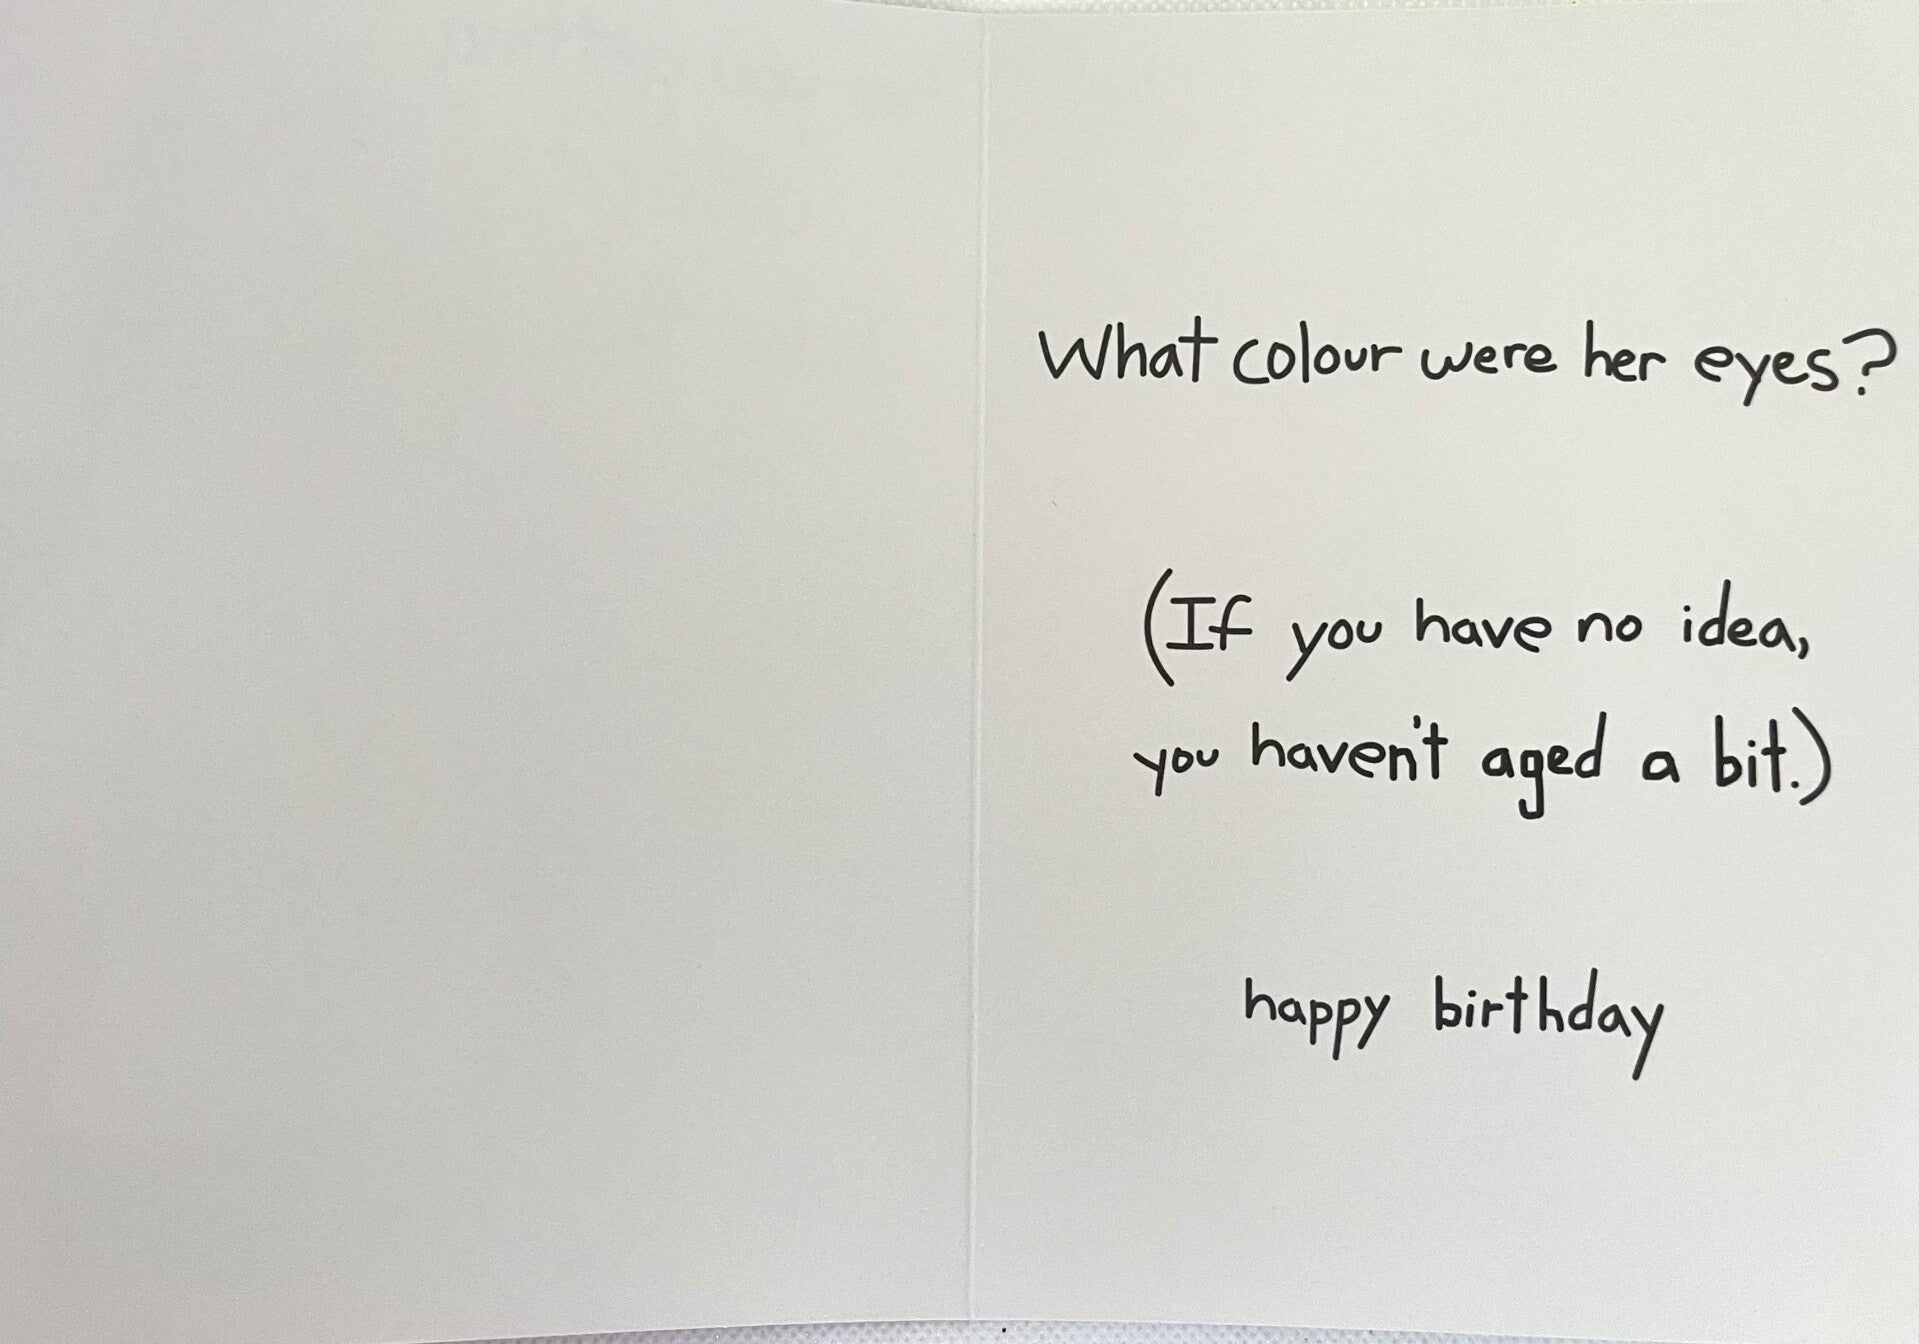 What colour were her eyes?
(If you have no idea,
you haven't aged a bit.)
happy birthday